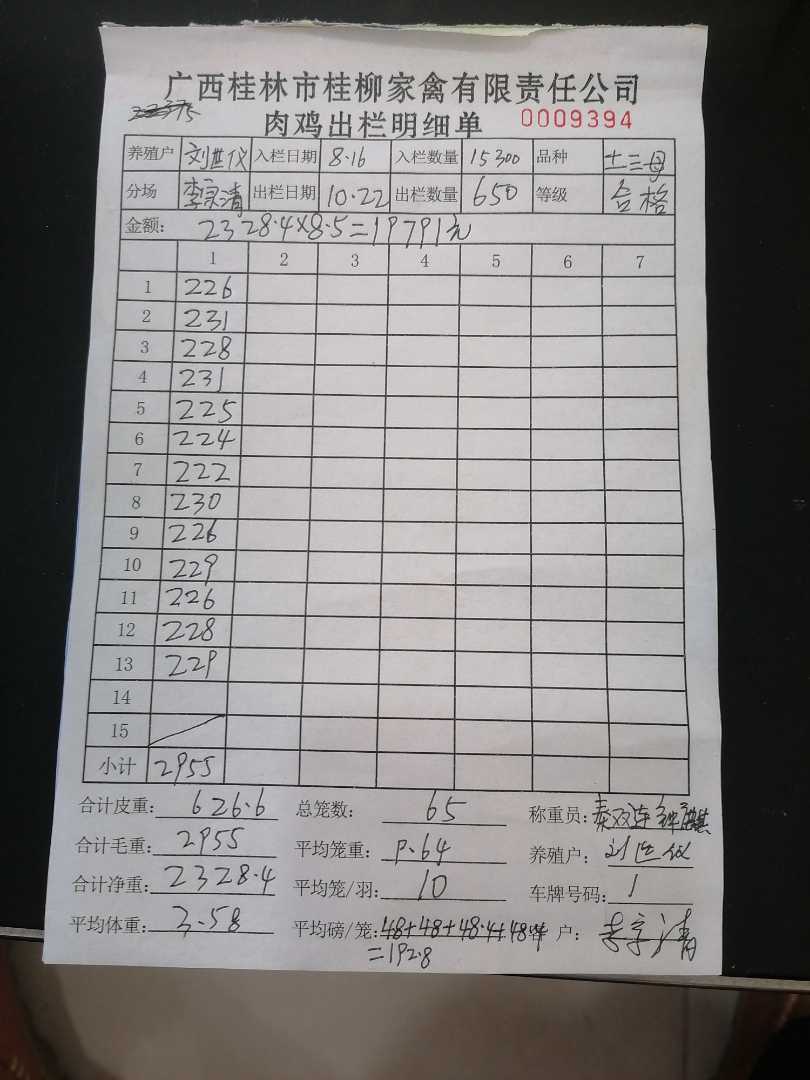 广西桂林市桂柳家禽有限责任公司
肉鸡出栏明细单 0009394
养殖户 刘世仪 入栏日期 8·16 入栏数量 15300 品种 土三母
分场 李京清 出栏日期 10.22 出栏数量 650 等级 合格
金额: 2328.4×8.5=19791元
1 2 3 4 5 6 7
1 226
2 231
3 228
4 231
5 225
6 224
7 222
8 230
9 226
10 229
11 226
12 228
13 229
14
15
小计 2955
合计皮重: 626.6 总笼数: 65 称重员: 秦双连
合计毛重: 2955 平均笼重: 9.64 养殖户: 刘世仪
合计净重: 2328.4 平均笼/羽: 10 车牌号码: 1
平均体重: 3.58 平均磅/笼: 48+48+48.4+48.4 客户: 李京清
=192.8